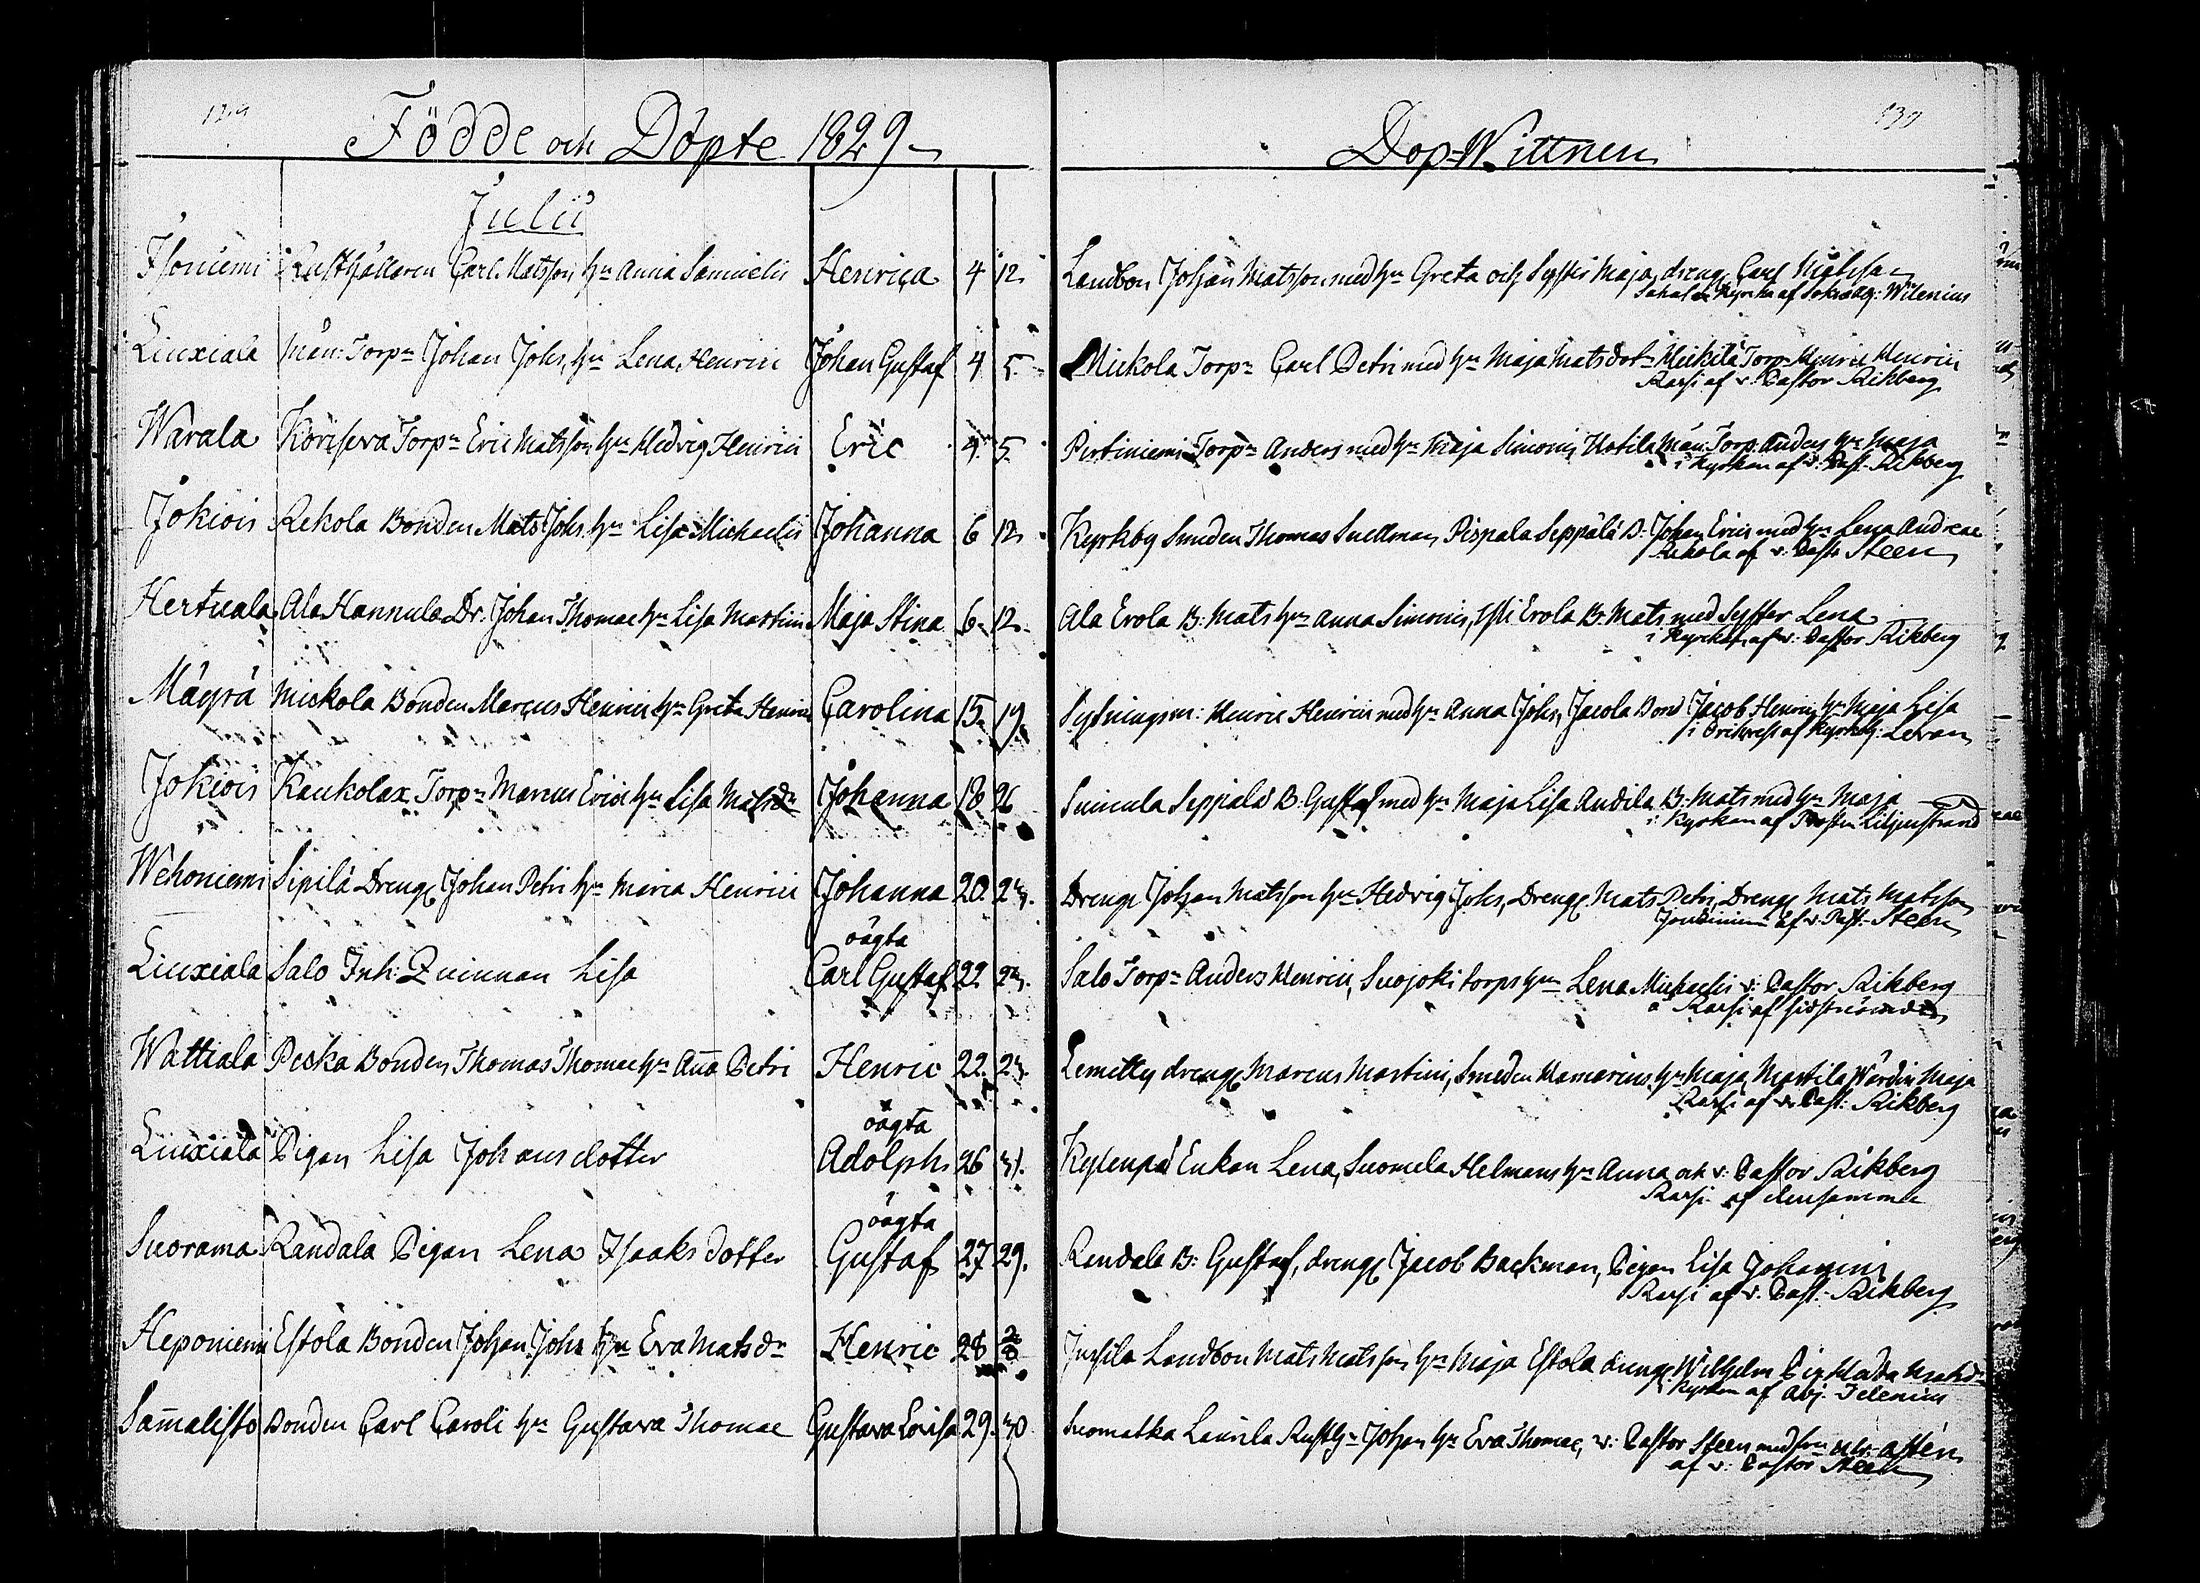 129
Födde och Döpte 1829
Julii
Isoniemi Rusthållaren Carl Matsson hu Anna Samuelis Henrica 4 12
Liuxiala Torpn Johan Johs, hu Lena Henrici Johan Gustaf 4 5
Warala Torpn Eric Matsson hu Hedvig Henrici Eric 4 5
Jokiois Rekola Bonden Mats Johs hu Lisa Michaelis Johanna 6 12
Hertuala Ala Hannula Dr. Johan Thomae hu Lisa Martini Maja Stina 6 12
Mäyrä Mickola Bonden Marcus Henrici hu Greta Henrici Carolina 15 19
Jokiois Kaukolax Torpn Marcus Erici hu Lisa Matsdr Johanna 18 26
Wehoniemi Sipilä Dreng Johan Petri hu Maria Henrici Johanna 20 23
oägta
Liuxiala Salo Inh: Quinnan Lisa Carl Gustaf 22 23
Wattiala Pecka Bonden Thomas Thomae hu Anna Petri Henric 22 23
oägta
Liuxiala Pigan Lisa Johansdotter Adolph 26 31
oägta
Suorama Randala Pigan Lena Isaksdotter Gustaf 27 29
Heponiemi Estola Bonden Johan Johs hu Eva Matsdr Henric 28 2/8
Sam̄alisto Bonden Carl Caroli hu Gustava Thomae Gustava Lovisa 29 30
130
Dop-Wittnen
Landbon Johan Matsson med hu Greta och Syster Maja, dreng Carl
af Wilenius
Mickola Torpn Carl Petri med hu Maja Matsdotr Torpn Henric Henrici
Karsi af v. Pastor Rikberg
Pirtiniemi Torpn Anders med hu Maja Simonis, Torp. Anders hu Maja
i Kyrkan af v. Past. Rikberg
Kyrkby Smeden Thomas Snellman, Pispala Seppälä B. Johan Erici med hu Lena Andreae
Rekola af v. Past. Steen
Ala Erola B. Mats hu Anna Simonis, Ysti Erola B. Mats med Syster Lena
i Kyrkan af v. Pastor Rikberg
Sytningsm: Henric Henrici med hu Anna Johs, Jacola Bond Jacob Henrici hu Maja Lisa
i af Levan
Suinula Seppälä B. Gustaf med hu Maja Lisa Andila B. Mats med hu Maja
i Kyrkan af Prosten Liljenstrand
Dreng Johan Matsson hu Hedvig Johs, Dreng Mats Petri, Dreng Mats Matsson
af v. Past. Steen
Salo Torpn Anders Henrici, Suojoki torps hu Lena Michaelis v. Pastor Rikberg
Karsi af
Lemetty dreng Marcus Martini, Smeden hu Maja, Mattila Wärdin Maja
Karsi af v. Past. Rikberg
Enkan Lena, Suomela Helmans hu Anna och v. Pastor Rikberg
Karsi af densamme
Randala B. Gustaf, dreng Jacob Backman, Pigan Lisa Johannis
Karsi af v. Past. Rikberg
Jussila Landbon Mats Matsson hu Maja Estola dreng Wilhelm
Kyrkan af Adj.
Suomatka Laurila Rusth. Johan hu Eva Thomae, v. Pastor Steen med fru
af v. Pastor Steen